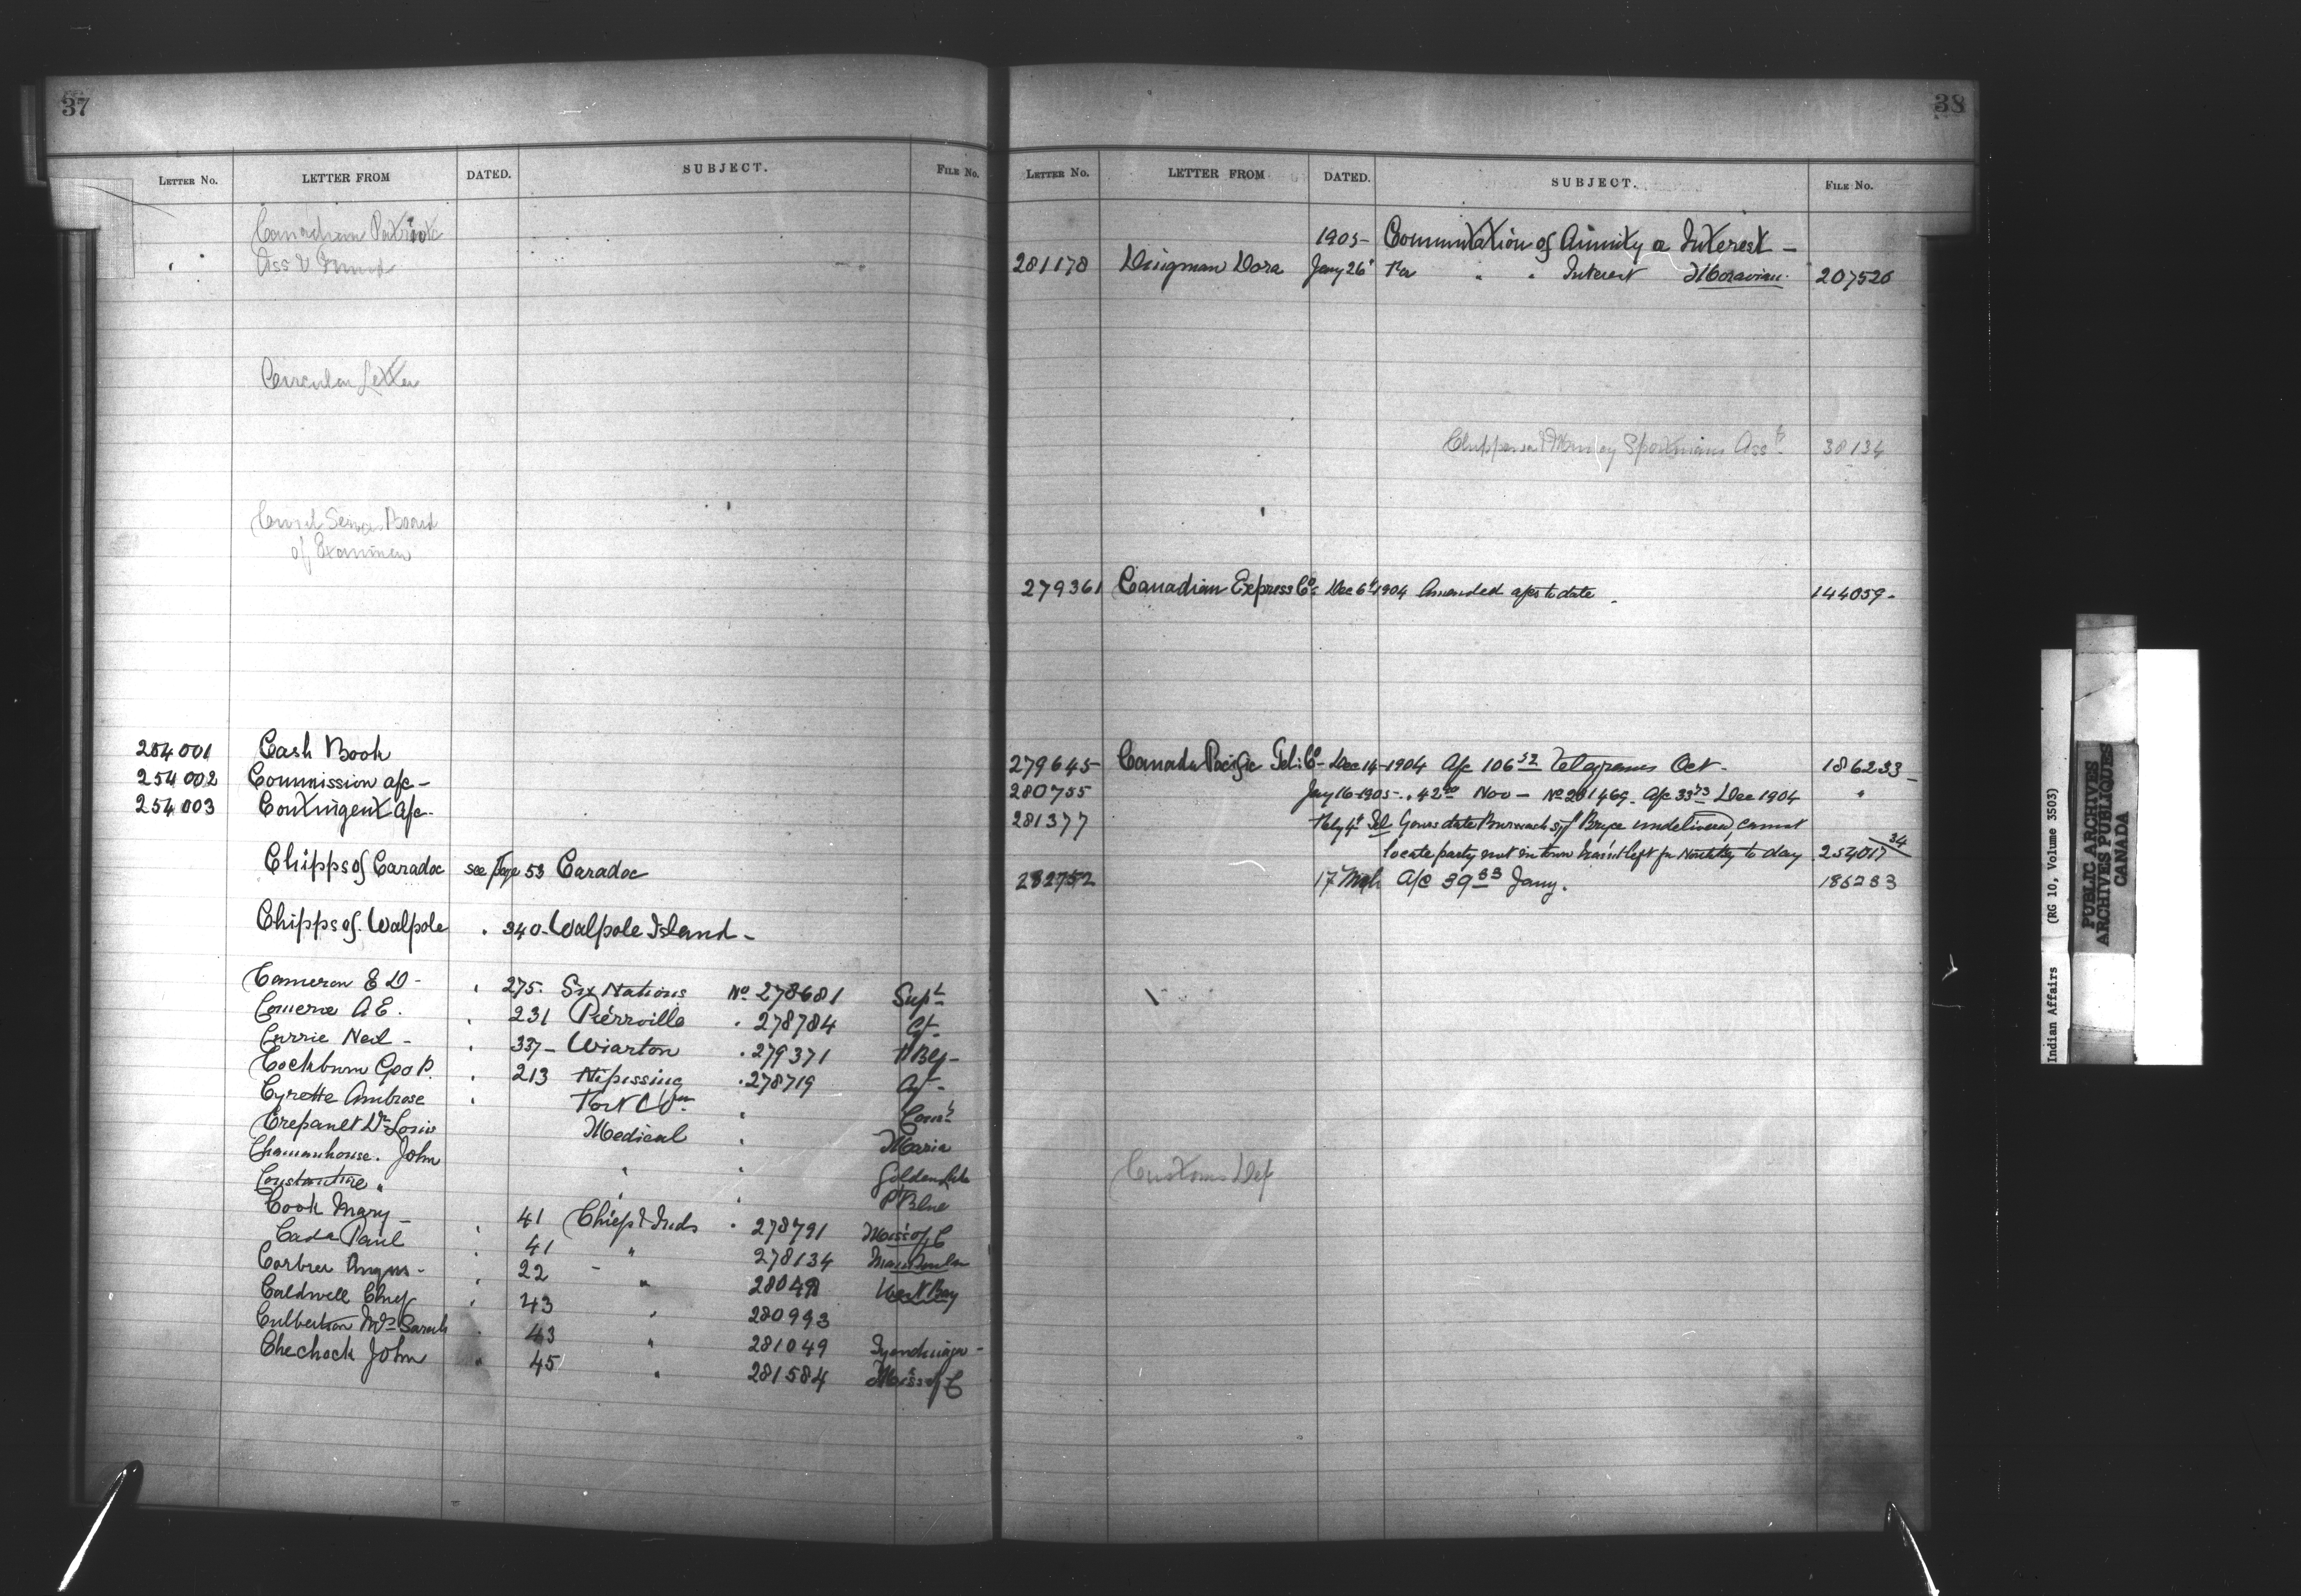 37
LETTER No. LETTER FROM DATED. SUBJECT. FILE No.
Canadian Patriotic
Ass & Fund
Circular Letter
Civil Service Board
of Examiners
254001 Cash Book
254002 Commission a/c -
254003 Contingent a/c -
Chipps of Caradoc see Page 53 Caradoc
Chipps of Walpole " 340 - Walpole Island -
Cameron E D - " 275. Six Nations No 278681 Supt
A E. " 231 Pierreville " 278784 Agt
Currie Neil - " 337 - Wiarton " 279371
Cockburn Geo P. " 213 Nipissing " 278719 Agt -
Cyrette Ambrose " Fort Wm "
Crepault Dr Louis Medical " Maria
John " " Golden Lake
Constantine " " " P Blue
Cook Mary - " 41 Chiefs & Inds " 278791 Miss of C
Cada Paul " 41 " 278134
Corbier Angus - " 22 - " West Bay
Caldwell Chief " 43 " 280993
Culbertson Mrs Sarah " 43 " 281049 Tyendinaga -
Chechock John " 45 " 281584 Miss of C
38
LETTER No. LETTER FROM DATED. SUBJECT. FILE No.
1905 - Commutation of Annuity or Interest -
281178 Dingman Dora Jany 26" Re " " Interest Moravian. 207520
Sportsmans Asst 38134
279361 Canadian Express Co Dec 6" 1904 Amended a/cs to date 144059 -
279645 - Canada Pacific Tel. Co - Dec 14 - 1904 A/c 106 52 Telegrams Oct - 186233 -
280755 Jany 16 - 1905 - " 42 Nov - No 281469. A/c 33 73 Dec 1904 "
281377 Feby 4" Tel Yours date Bryce undelivered, cannot
locate party not in town left for to day 254017 34
282752 17 Mch A/c 39 83 Jany. 186233
Customs Dep
Indian Affairs (RG 10, Volume 3503)
PUBLIC ARCHIVES
ARCHIVES PUBLIQUES
CANADA